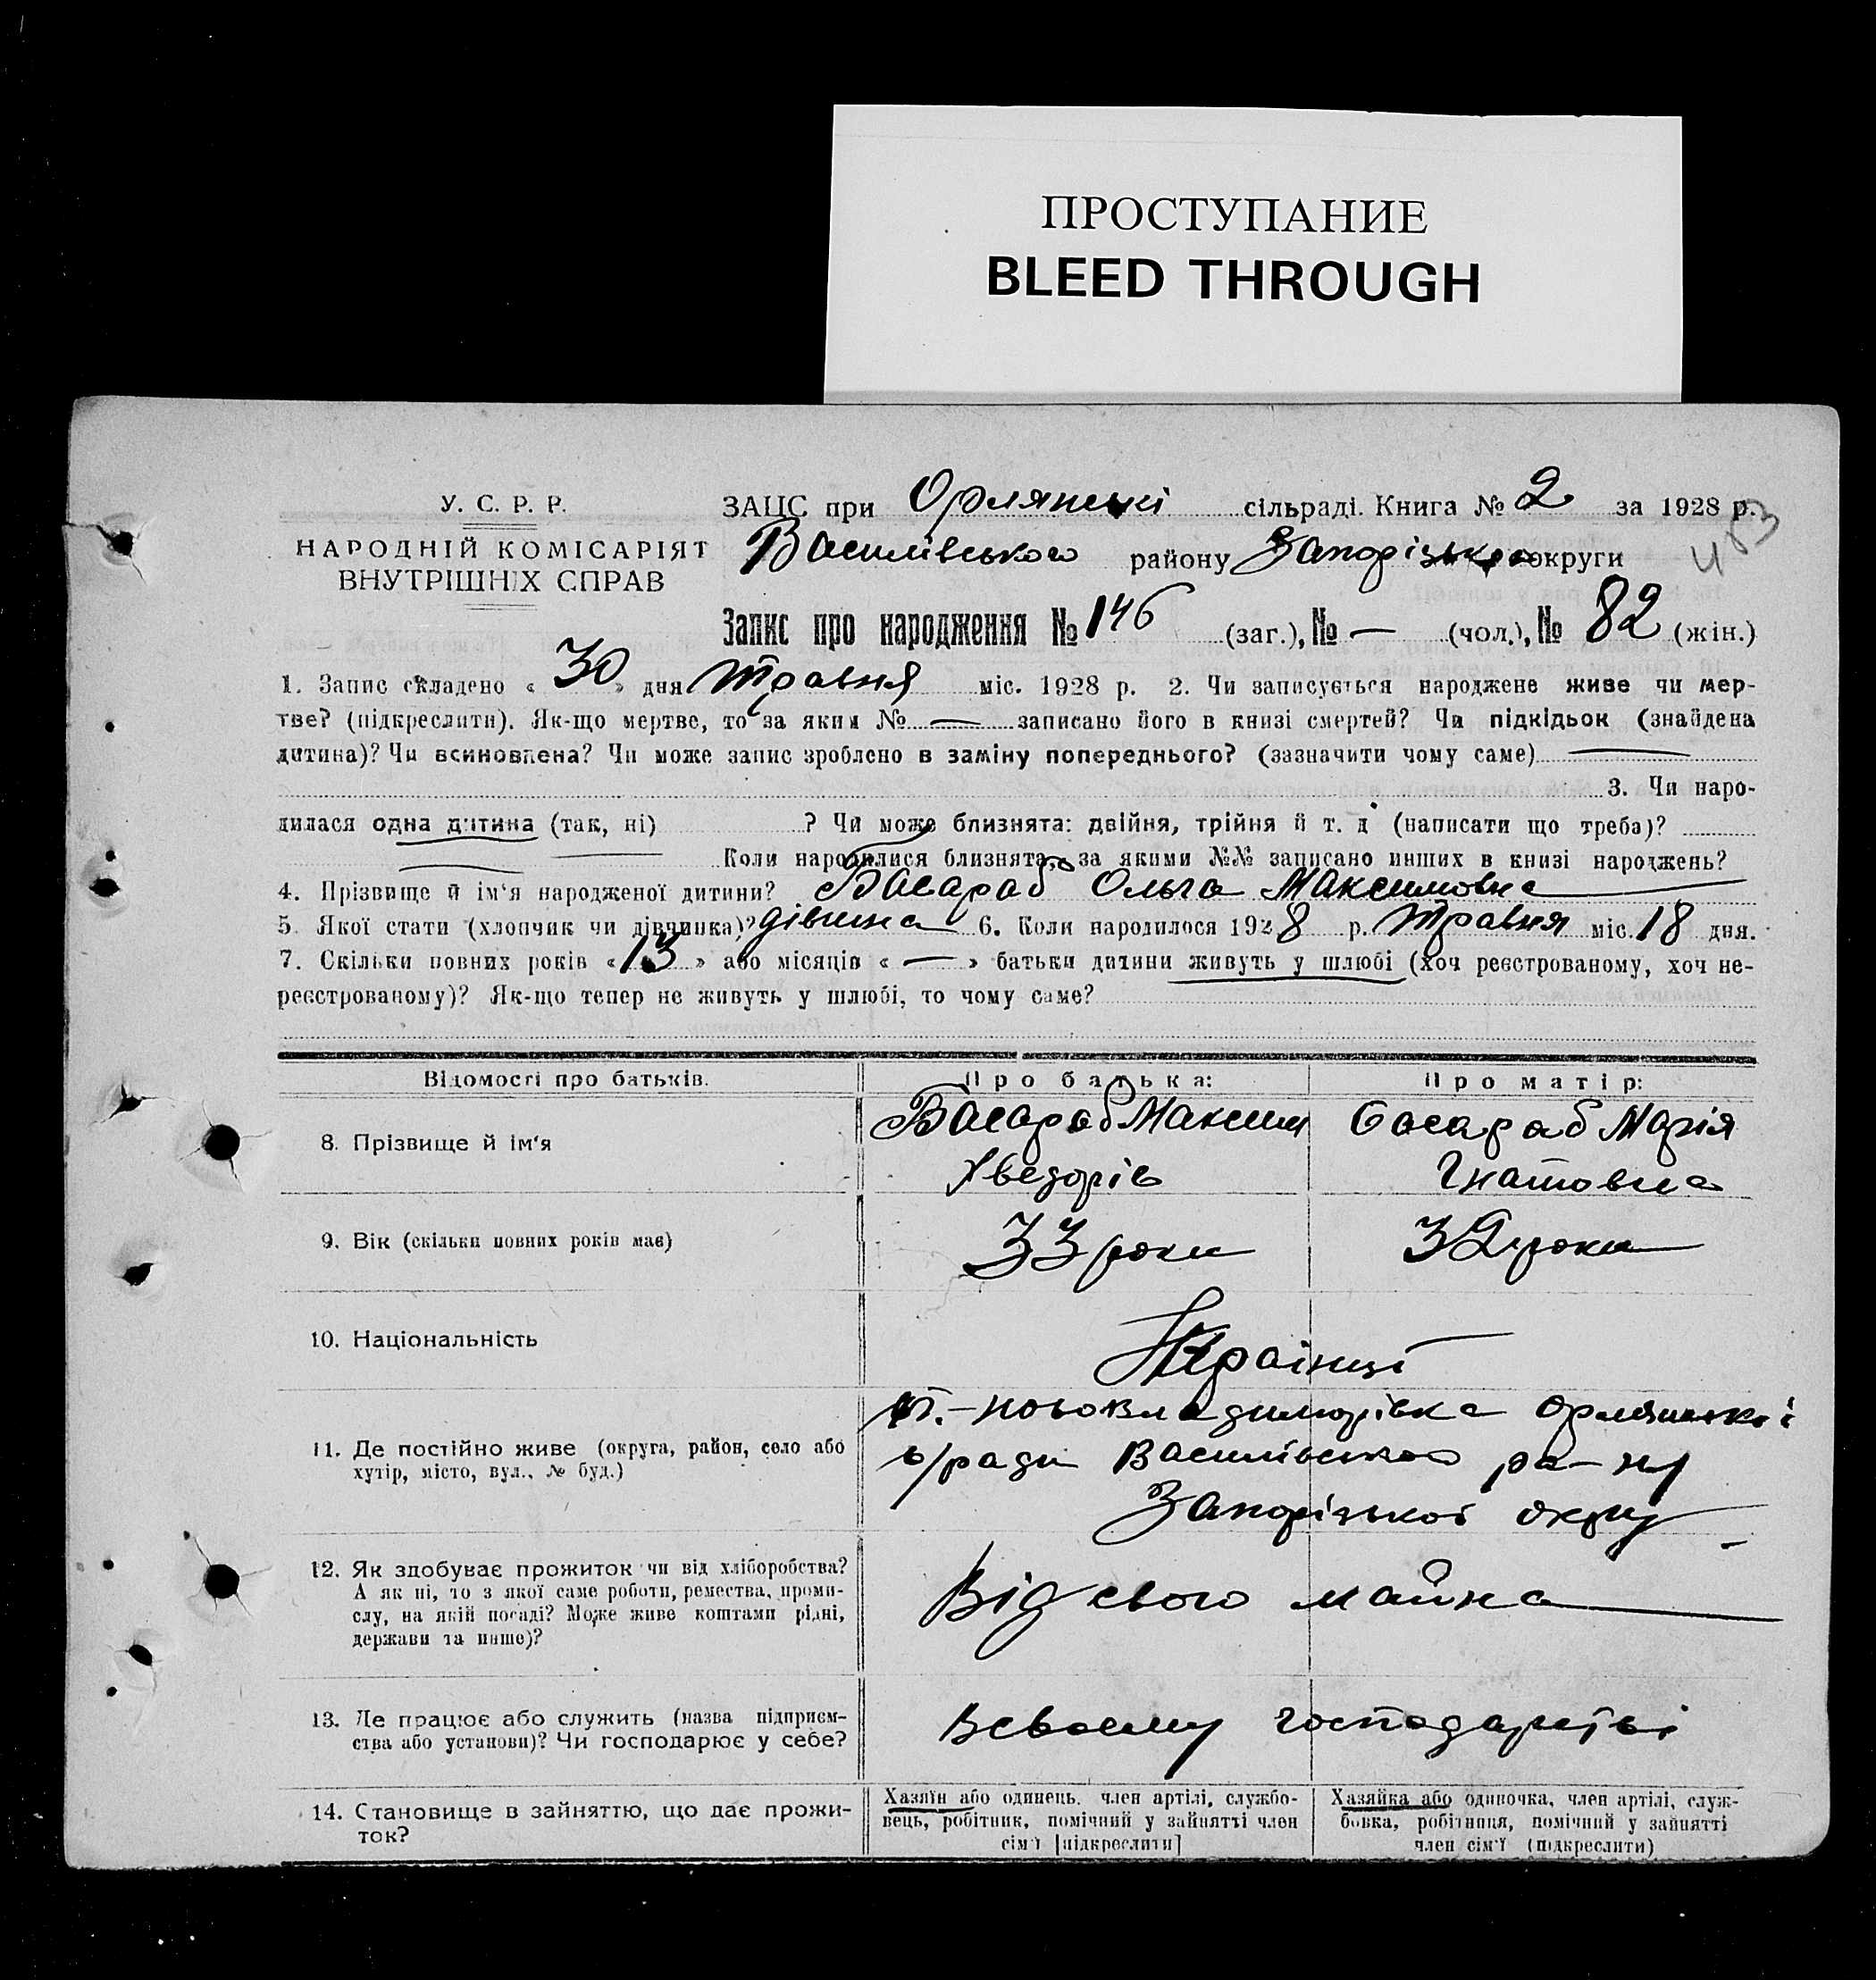 ПРОСТУПАНИЕ
BLEED THROUGH
У. С. Р. Р.
НАРОДНІЙ КОМІСАРІЯТ
ВНУТРІШНІХ СПРАВ
ЗАЦС при Орлянські сільраді. Книга № 2 за 1928 р.
Василівського району Запорізько округи
Запис про народження № 146 (заг.), № — (чол.), № 82 (жін.)
1. Запис складено « 30 » дня травня міс. 1928 р. 2. Чи записується народжене живе чи мер-
тве? (підкреслити). Як-що мертве, то за яким № — записано його в книзі смертей? Чи підкідьок (знайдена
дитина)? Чи всиновлена? Чи може запис зроблено в заміну попереднього? (зазначити чому саме) —
3. Чи наро-
дилася одна дитина (так, ні) ? Чи може близнята: двійня, трійня й т. д (написати що треба)?
Коли народилися близнята, за якими №№ записано инших в книзі народжень?
4. Прізвище й ім'я народженої дитини? Басараб Ольга Максимовна
5. Якої стати (хлопчик чи дівчинка)? дівчина 6. Коли народилося 1928 р. травня міс. 18 дня.
7. Скільки повних років « 13 » або місяців « — » батьки дитини живуть у шлюбі (хоч реєстрованому, хоч не-
реєстрованому)? Як-що тепер не живуть у шлюбі, то чому саме?
Відомості про батьків.
Про батька:
Про матір:
8. Прізвище й ім'я
Басараб Максим
Хведорів
басараб Марія
Гнатовна
9. Вік (скільки повних років має)
33 роки
32 роки
10. Національність
Українці
11. Де постійно живе (округа, район, село або
хутір, місто, вул., № буд.)
нововладиморівка Орлянської
с/ради Василівського ра-ну
Запорізької окру
12. Як здобуває прожиток чи від хліборобства?
А як ні, то з якої саме роботи, ремества, проми-
слу, на якій посаді? Може живе коштами рідні,
держави та инше)?
Від свого майна
13. Де працює або служить (назва підприєм-
ства або установи)? Чи господарює у себе?
Всвоєму господарстві
14. Становище в зайняттю, що дає прожи-
ток?
Хазяїн або одинець, член артілі, службо-
вець, робітник, помічний у зайнятті член
сім'ї [підкреслити]
Хазяйка або одиночка, член артілі, служ-
бовка, робітниця, помічний у зайнятті
член сім'ї (підкреслити)